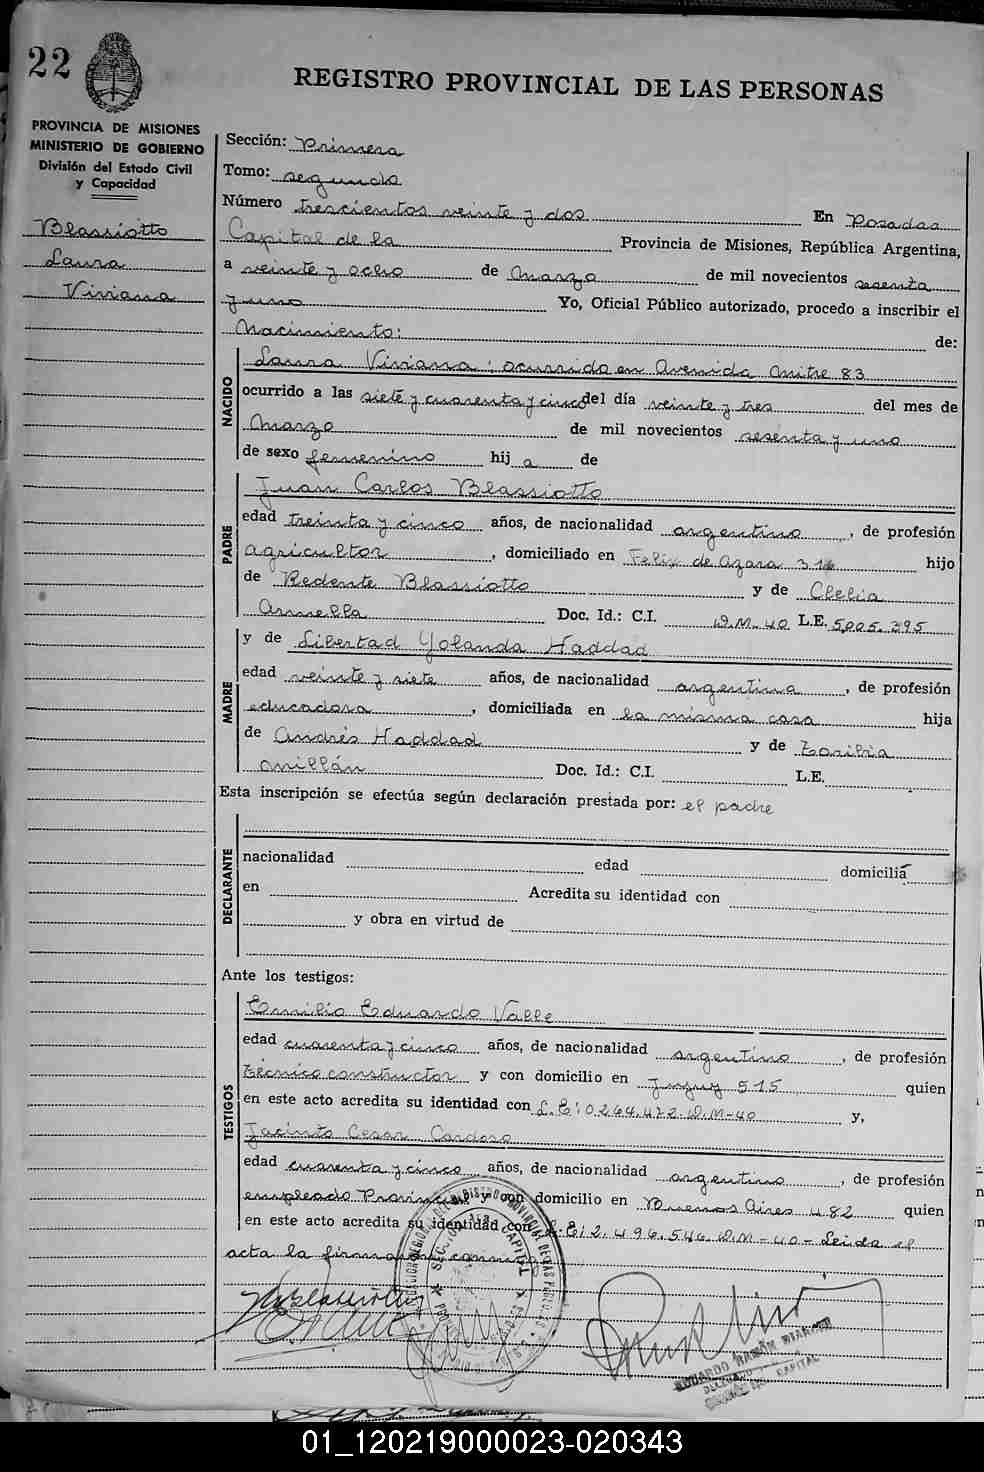 22
REGISTRO PROVINCIAL DE LAS PERSONAS
PROVINCIA DE MISIONES
MINISTERIO DE GOBIERNO
División del Estado Civil
y Capacidad
Blassiotto
Laura
Viviana
Sección: Primera
Tomo: segundo
Número trescientos veinte y dos En Posadas
Capital de la Provincia de Misiones, República Argentina,
a veinte y ocho de Marzo de mil novecientos sesenta
y uno Yo, Oficial Público autorizado, procedo a inscribir el
Nacimiento: de:
NACIDO
Laura Viviana; ocurrido en Avenida Mitre 83
ocurrido a las siete y cuarenta y cinco del día veinte y tres del mes de
Marzo de mil novecientos sesenta y uno
de sexo femenino hij a de
PADRE
Juan Carlos Blassiotto
edad treinta y cinco años, de nacionalidad argentino, de profesión
agricultor, domiciliado en Felix de Azara 316 hijo
de Redente Blassiotto y de Clelia
Armella Doc. Id.: C.I. D.M. 40 L.E. 5.005.395
MADRE
y de Libertad Yolanda Haddad
edad veinte y siete años, de nacionalidad argentina, de profesión
educadora, domiciliada en la misma casa hija
de Andrés Haddad y de Zoribia
Millán Doc. Id.: C.I. L.E.
Esta inscripción se efectúa según declaración prestada por: el padre
DECLARANTE
nacionalidad edad domicilia
en Acredita su identidad con
y obra en virtud de
Ante los testigos:
TESTIGOS
Emilio Eduardo Valle
edad cuarenta y cinco años, de nacionalidad argentino, de profesión
técnico constructor y con domicilio en Jujuy 515 quien
en este acto acredita su identidad con L.E: 0.264.472 D.M-40 y,
Jacinto Cesar Cardozo
edad cuarenta y cinco años, de nacionalidad argentino, de profesión
empleado Provincial y con domicilio en Buenos Aires 482 quien
en este acto acredita su identidad con L.E: 2.496.546 D.M-40- Leida el
acta la firmaron conmigo
EDUARDO RAMÓN
CAPITAL
01_120219000023-020343